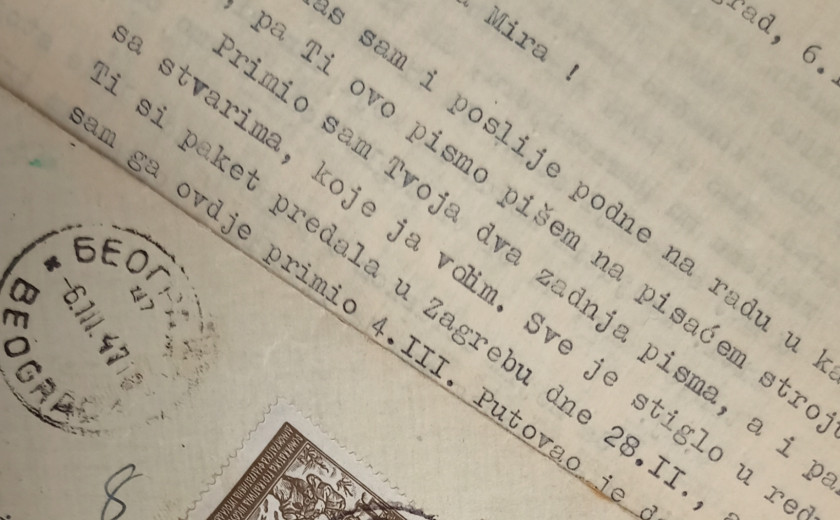 grad, 6.
Mira !
sam i poslije podne na radu u
pa Ti ovo pismo pišem na pisaćem stroju
Primio sam Tvoja dva zadnja pisma, a i
sa stvarima, koje ja volim. Sve je stiglo u
Ti si paket predala u Zagrebu dne 28.II.,
sam ga ovdje primio 4.III. Putovao je
БЕОГР
-6.III.47
BEOGRA
8